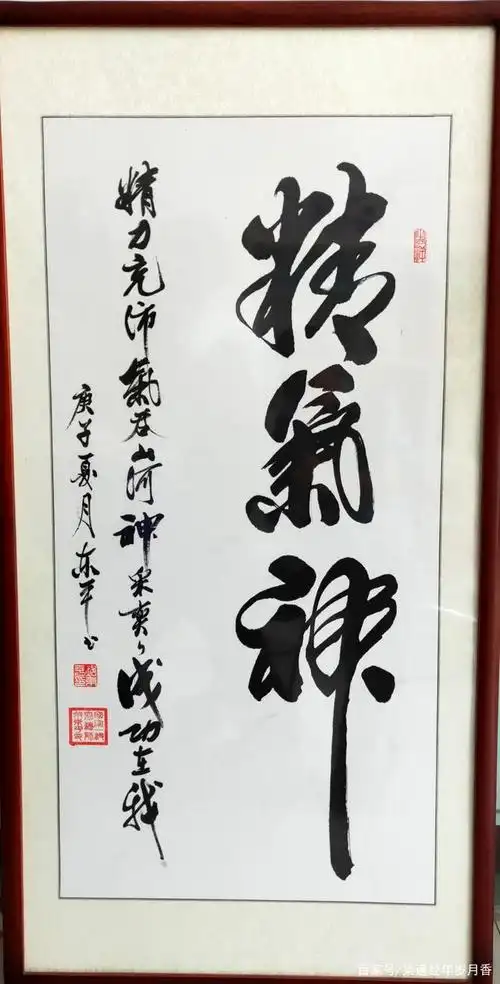 精氣神
精力充沛氣吞山河神采奕々成功在我
庚子夏月东平书
百家号/柒通赴年岁月香